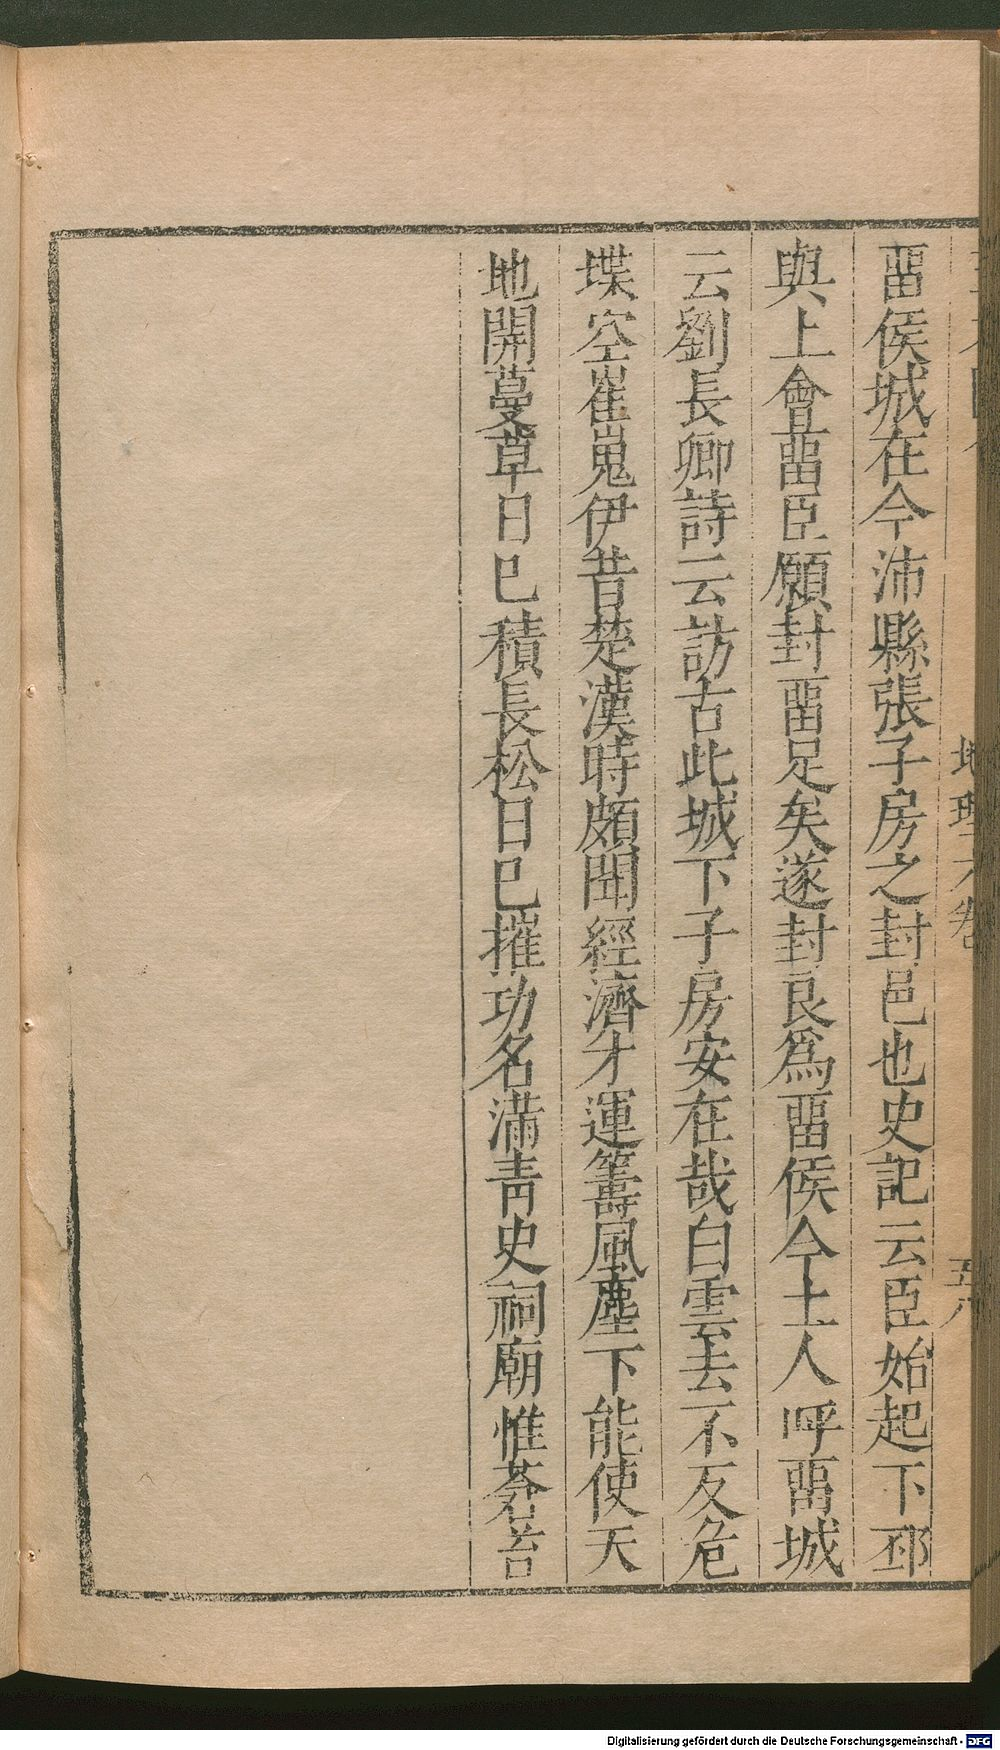 畱侯城在今沛縣張子房之封邑也史記云臣始起下邳
與上會畱臣願封畱足矣遂封良爲畱侯今土人呼畱城
云劉長卿詩云訪古此城下子房安在哉白雲去不反危
堞空崔嵬伊昔楚漢時頗聞經濟才運籌風塵下能使天
地開蔓草日已積長松日已摧功名滿青史祠廟惟蒼苔
地理六卷
Digitalisierung gefördert durch die Deutsche Forschungsgemeinschaft - DFG